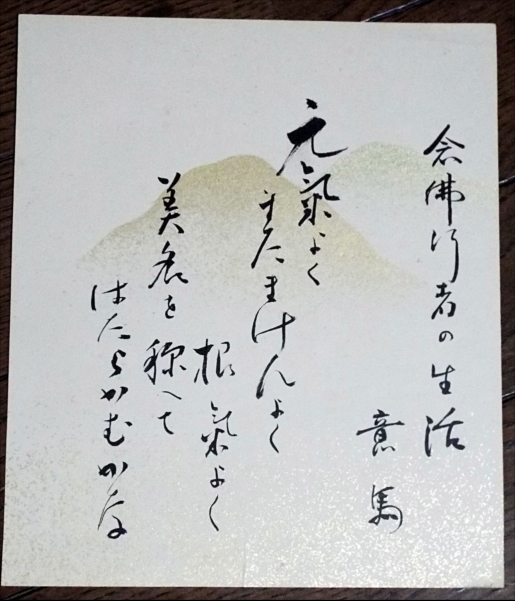 念佛行者の生活
意馬
元氣よく
またまけんよく
根氣よく
美名を称へて
はたらかむかな